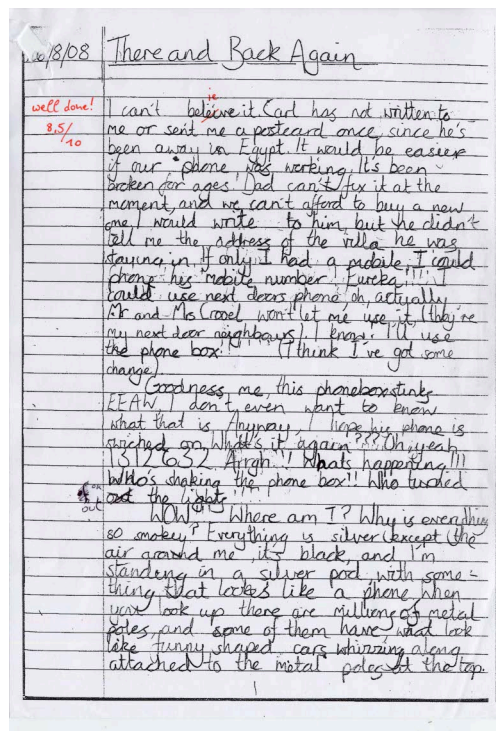 6/8/08 There and Back Again
well done!
8.5/10
ie
I can't beleive it. Carl has not written to
me or sent me a postcard once, since he's
been away in Egypt. It would be easier
if our phone was working. It's been
broken for ages. Dad can't fix it at the
moment, and we can't afford to buy a new
one. I would write to him, but he didn't
tell me the address of the villa he was
staying in. If only I had a mobile, I could
phone his mobile number! Eureka!!!! I
could use next doors phone, oh, actyally
Mr and Mrs won't let me use it (they're
my next door neighbours). I know! I'll use
the phone box!!! (I think I've got some
change)
Goodness me, this phonebox stinks
EEAW I don't even want to know
what that is. Anyway, I hope his phone is
swiched on. What's it again??? Oh, yeah
1312632 Arrgh!! Whats happening!!!
Who's shaking the phone box!! Who turned
out the lights
out
WOW!! Where am I? Why is everything
so smokey? Everything is silver (except the
air around me, its black, and I'm
standing in a silver pod with some-
thing that lookes like a phone, when
you look up there are millions of metal
poles, and some of them have, what look
like funny shaped, cars whirring along
attached to the metal poles at the top.
1